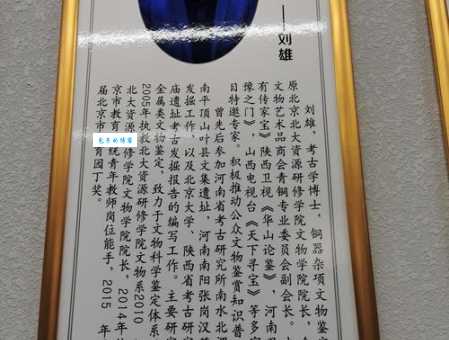 ——刘雄
刘雄，考古学博士，铜器杂项文物鉴定
原北京北大资源研修学院文物学院院长，
文物艺术品商会青铜专业委员会副会长。
有传家宝》陕西卫视《华山论鉴》，河南
豫之门》，山西电视台《天下寻宝》等多
目特邀专家。积极推动公众文物鉴赏知识普
曾先后参加河南省考古研究所南水北
南平顶山叶县文集遗址，河南南阳张岗汉
发掘工作，以及北京大学、陕西省考古研
庙遗址考古发掘报告的编写工作。主要研
金属类文物鉴定，致力于文物科学鉴定体系
2005年执教北大资源研修学院文物系2010
北大资源研修学院文物学院院长，2014年
京市教育系统青年教师岗位能手，2015年
届北京市 育园丁奖。